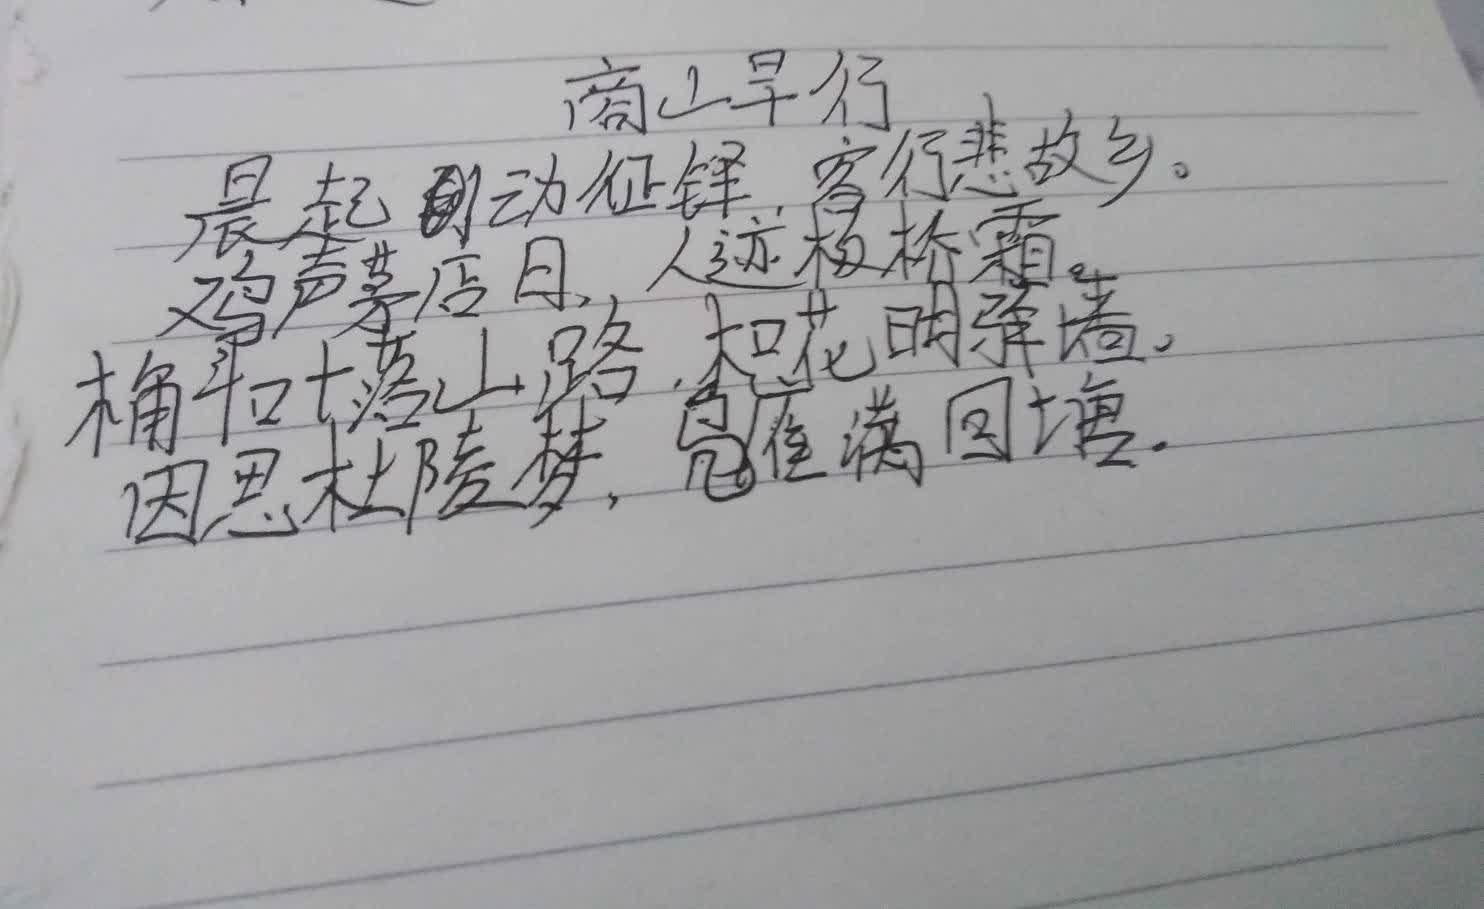 商山早行
晨起动征铎,客行悲故乡。
鸡声茅店月,人迹板桥霜。
槲叶落山路,枳花明驿墙。
因思杜陵梦,凫雁满回塘.